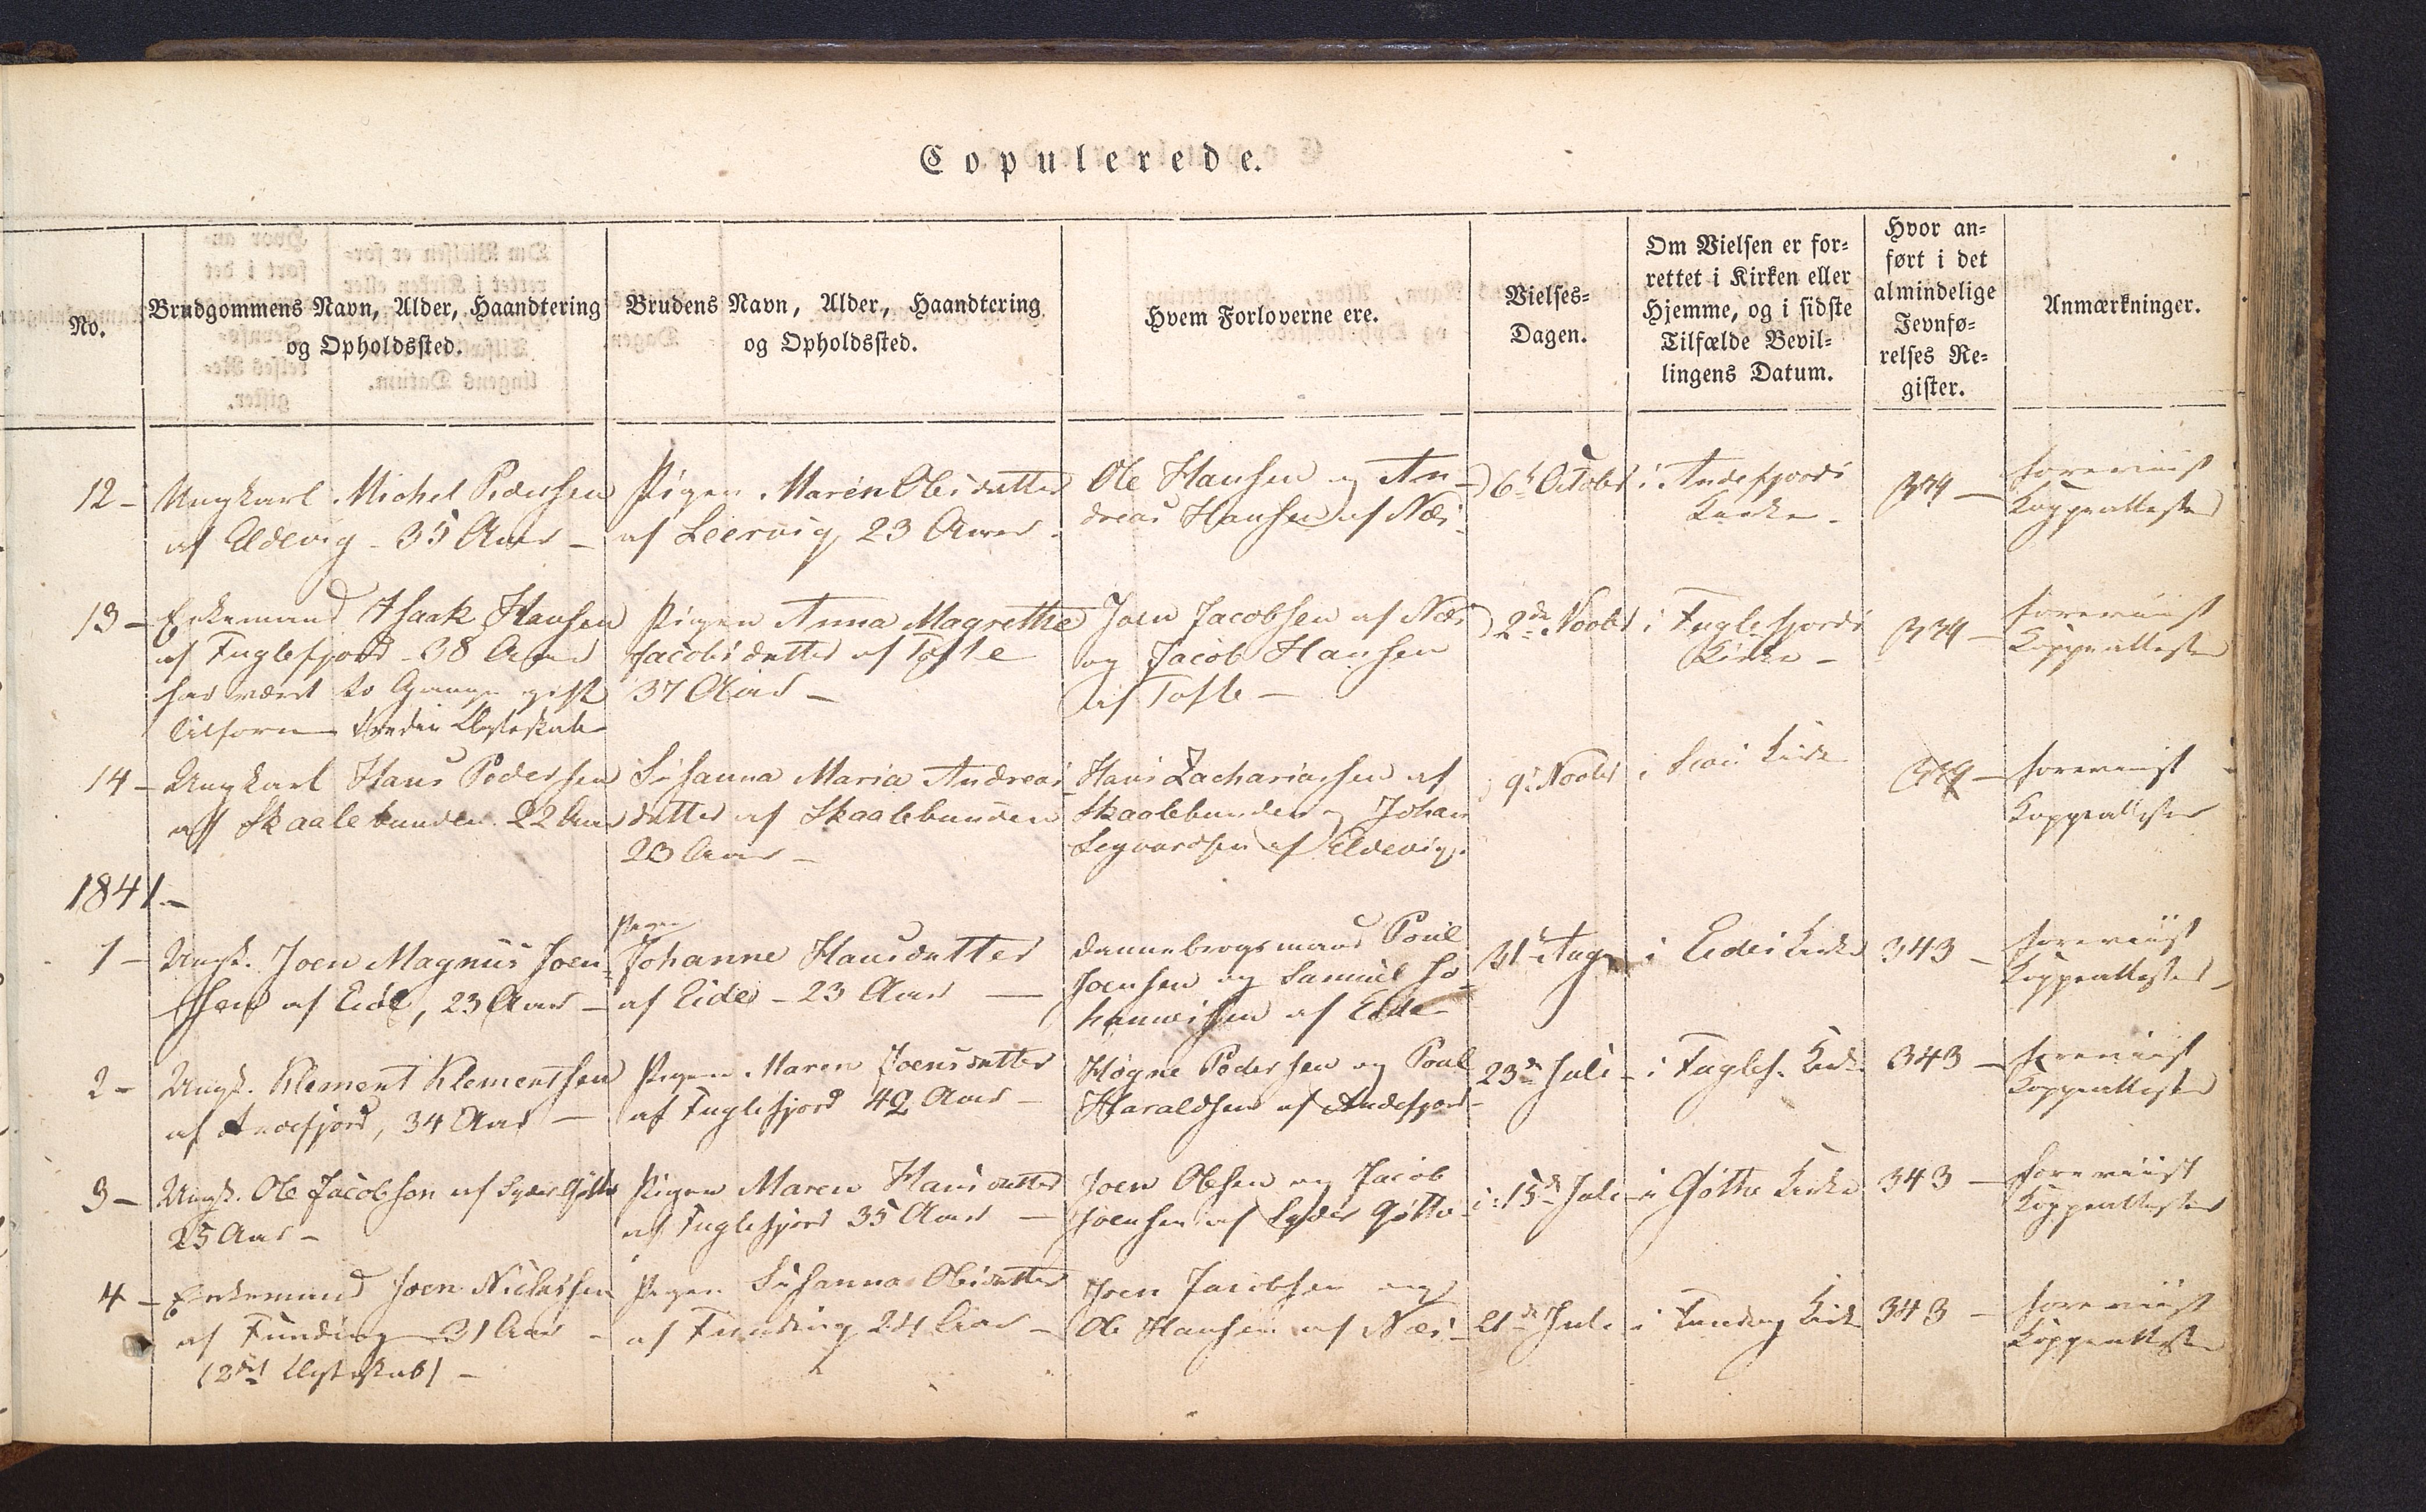 Copulerede.
No.
Brudgommens Navn, Alder, Haandtering
og Opholdssted.
Brudens Navn, Alder, Haandtering
og Opholdssted.
Hvem Forloverne ere.
Vielses-
Dagen.
Om Vielsen er for-
rettet i Kirken eller
Hjemme, og i sidste
Tilfælde Bevil-
lingens Datum.
Hvor an-
ført i det
almindelige
Jevnfø-
relses Re-
gister.
Anmærkninger.
12 -
Ungkarl Michel Pedersen
af Eldevig - 35 Aar -
Pigen Maren Olesdatter
af Leervig, 23 Aar -
Ole Hansen og An-
dreas Hansen af Næs -
6t October
i Andefjords
Kirke -
339 -
foreviist
Koppeattester
13 -
Enkemand Isaak Hansen
af Fuglefjord - 38 Aar
har været to Gange gift
tilforn tredie Ægteskab
Pigen Anna Magrethe
Jacobsdatter af Tofte
37 Aar -
Joen Jacobsen af Næs
og Jacob Hansen
af Tofte -
2de Novbr
i Fuglefjords
Kirke -
339 -
foreviist
Koppeattester
14 -
Ungkarl Hans Pedersen
af Skaalebunden 22 Aar
Susanna Maria Andreas-
datter af Skaalebunden
23 Aar -
Hans Zachariasen af
Skaalebunden og Johan
Segvardsen af Eldevig.
9. Novbr
i Kirke
339 -
foreviist
Koppeattester
1841 -
1 -
Ungk. Joen Magnus Joen-
sen af Eide, 23 Aar -
Pigen
Johanne Hansdatter
af Eide - 23 Aar -
Dannebrogsmand Poul
Joensen og Samuel Jo-
hannesen af Eide -
31t Aug
i Eides Kirke
343 -
foreviist
Koppeattester
2 -
Ungk. Klement Klementsen
af Andefjord, 34 Aar -
Pigen Maren Joensdatter
af Fuglefjord 42 Aar -
Høgne Pedersen og Poul
Haraldsen af Andefjord -
23de Juli -
i Fuglef. Kirke
343 -
foreviist
Koppeattester
3 -
Ungk. Ole Jacobsen af Syder Gøthe
25 Aar -
Pigen Maren Hansdatter
af Fuglefjord 35 Aar -
Joen Olsen og Jacob
Joensen af Syder Gøthe -
15de Juli -
i Gøthe Kirke
343 -
foreviist
Koppeattester
4 -
Enkemand Joen Niclassen
af Funding 31 Aar -
(2det Ægteskab) -
Pigen Susanna Olesdatter
af Funding 24 Aar -
Joen Jacobsen og
Ole Hansen af Næs -
21de Juli
i Funding Kirke
343 -
foreviist
Koppeattester